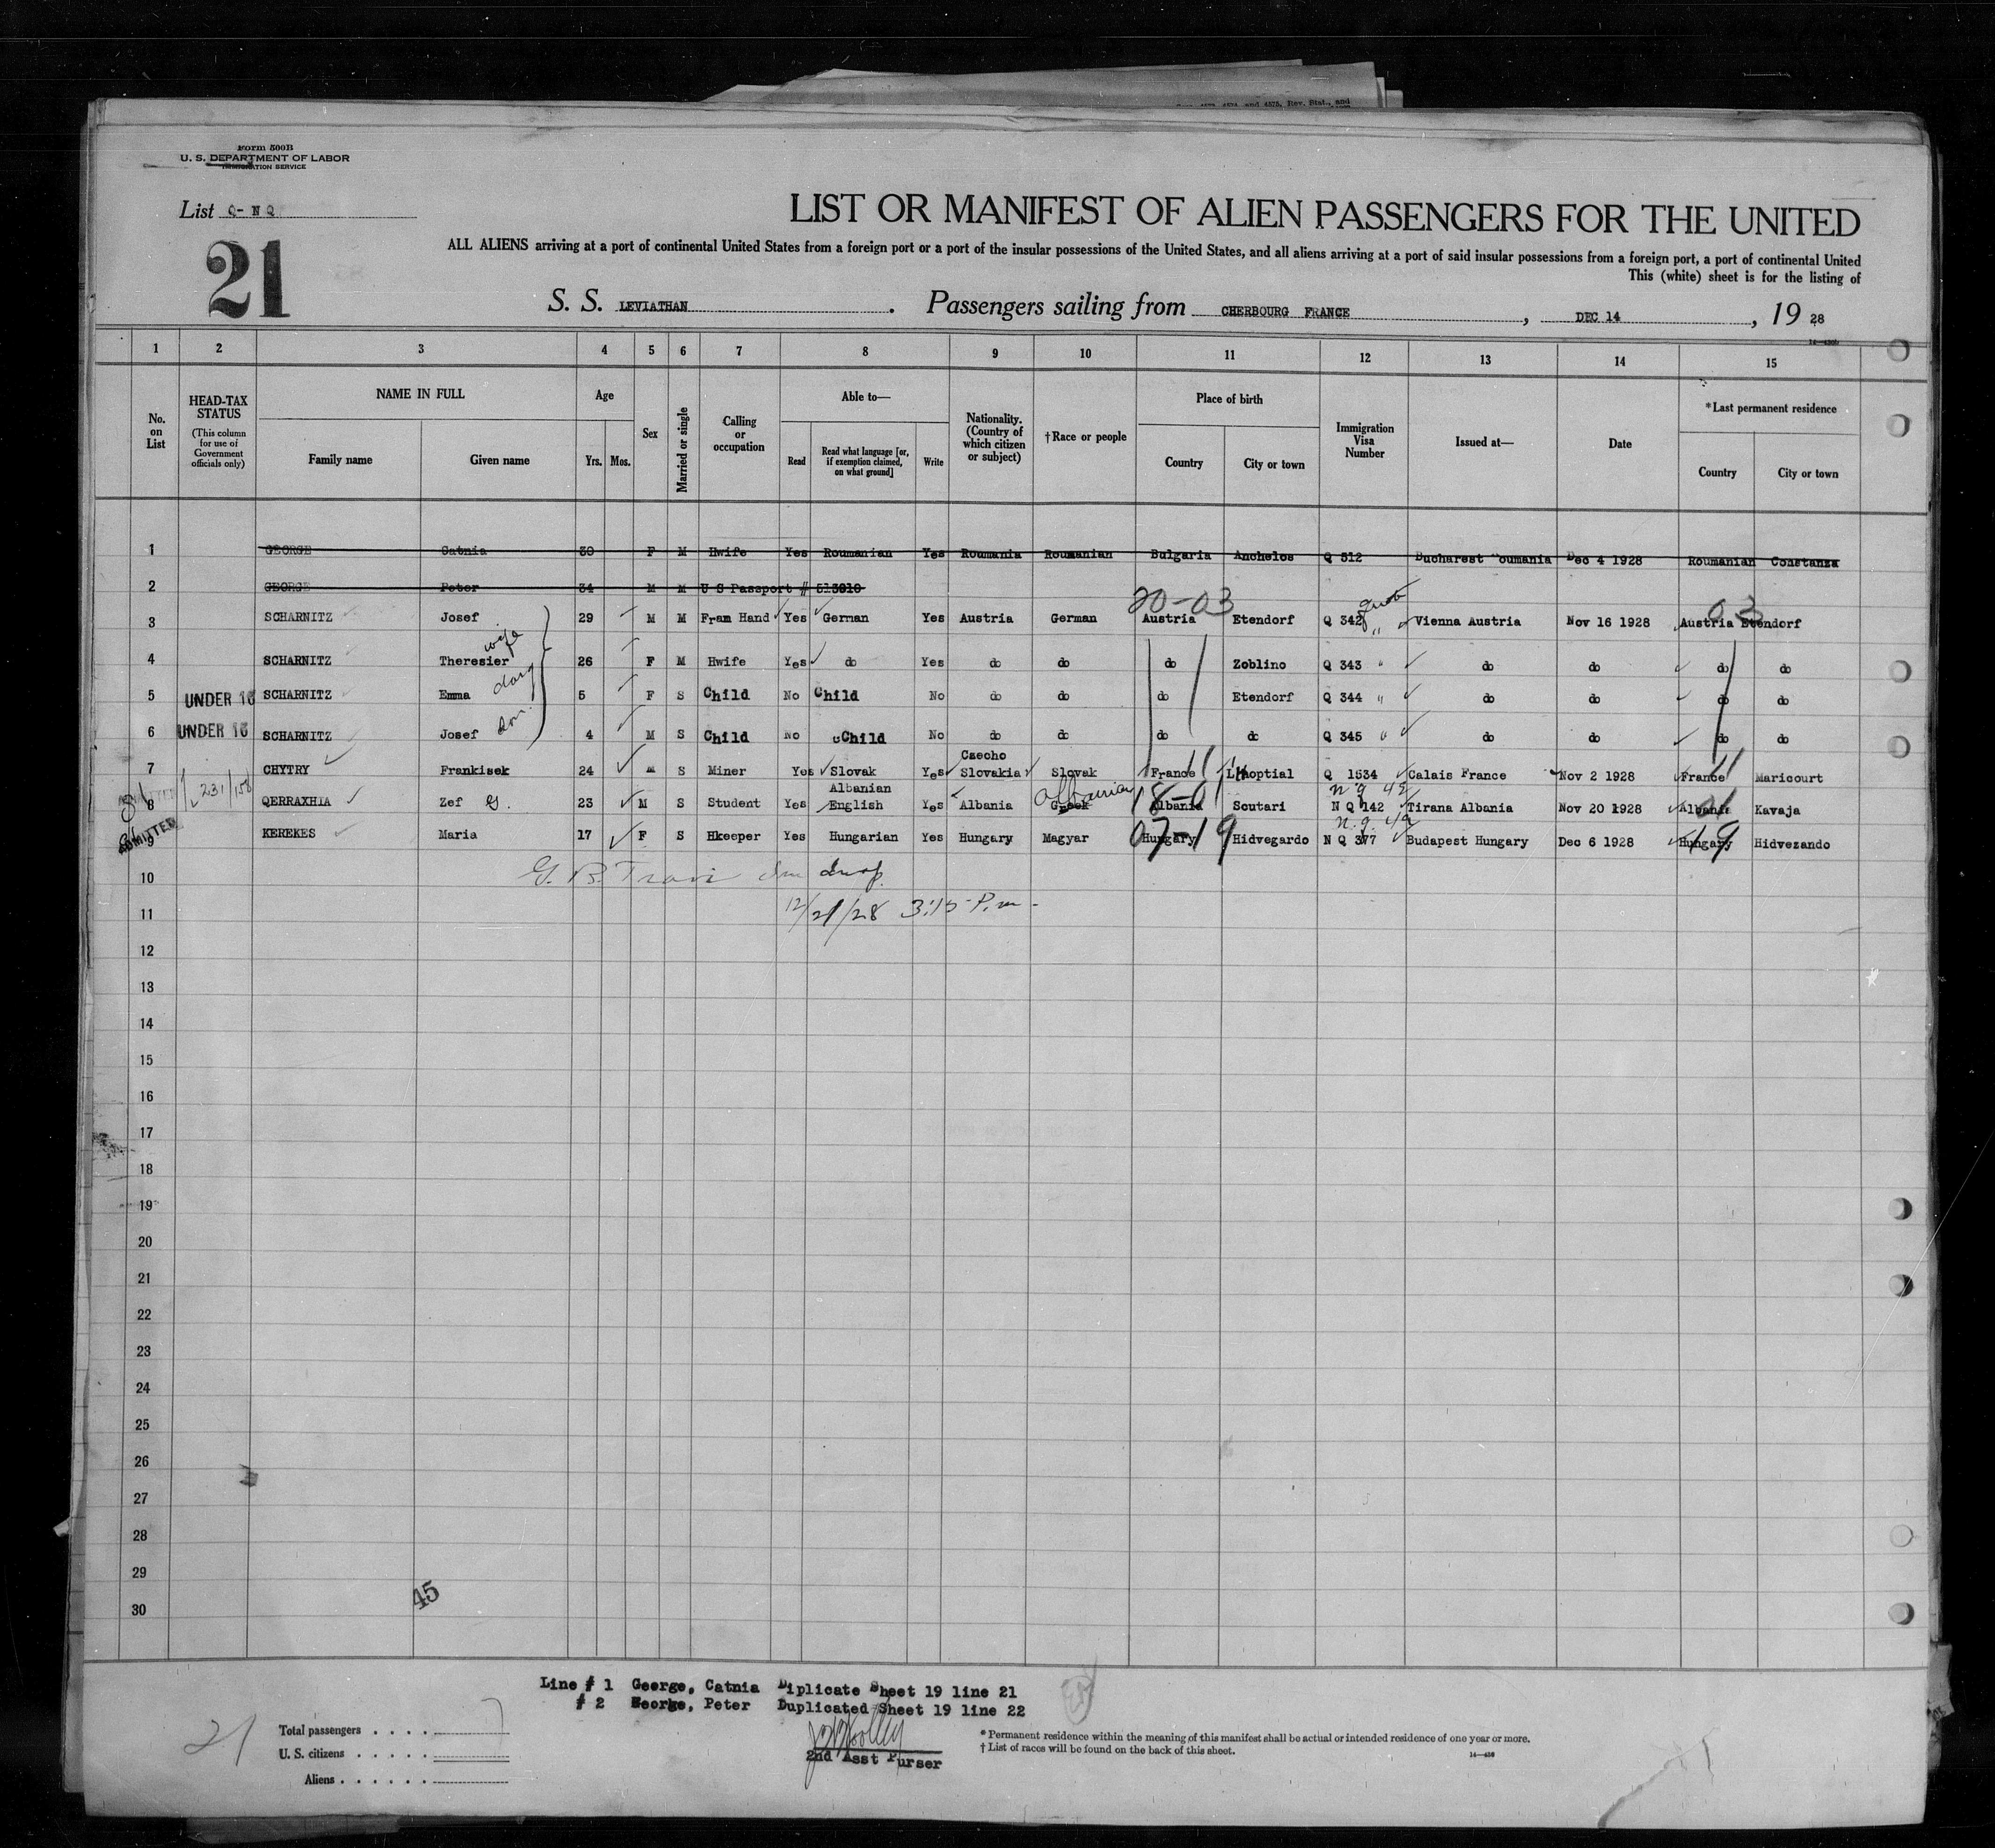 Form 500B
U. S. DEPARTMENT OF LABOR
IMMIGRATION SERVICE
List Q- N Q
21
LIST OR MANIFEST OF ALIEN PASSENGERS FOR THE UNITED
ALL ALIENS arriving at a port of continental United States from a foreign port or a port of the insular possessions of the United States, and all aliens arriving at a port of said insular possessions from a foreign port, a port of continental United
This (white) sheet is for the listing of
S. S. LEVIATHAN. Passengers sailing from CHERBOURG FRANCE, DEC 14, 19 28
1 2 3 4 5 6 7 8 9 10 11 12 13 14 15
No. on List
HEAD-TAX STATUS
(This column for use of Government officials only)
NAME IN FULL
Family name Given name
Age
Yrs. Mos.
Sex
Married or single
Calling or occupation
Able to—
Read
Read what language [or, if exemption claimed, on what ground]
Write
Nationality. (Country of which citizen or subject)
†Race or people
Place of birth
Country City or town
Immigration Visa Number
Issued at—
Date
*Last permanent residence
Country City or town
1 GEORGE Catnia 30 F M Hwife Yes Roumanian Yes Roumania Roumanian Bulgaria Anchelos Q 512 Bucharest oumania Dec 4 1928 Roumanian Constanza
2 GEORGE Peter 34 M M U S Passport # 513910
20-03 03
3 SCHARNITZ Josef 29 M M Fram Hand Yes German Yes Austria German Austria Etendorf Q 342 Vienna Austria Nov 16 1928 Austria Etendorf
4 SCHARNITZ Theresier wife 26 F M Hwife Yes do Yes do do do Zoblino Q 343 " do do do do
5 UNDER 16 SCHARNITZ Emma F 5 S Child No Child No do do do Etendorf Q 344 " do do do do
6 UNDER 16 SCHARNITZ Josef son 4 M S Child No Child No do do do do Q 345 " do do do do
7 CHYTRY Frankisek 24 M S Miner Yes Slovak Yes Czecho Slovakia Slovak France Lhoptial Q 1534 Calais France Nov 2 1928 France Maricourt
8 QERRAXHIA Zef G. 23 M S Student Yes Albanian English Yes Albania Greek Albanian Albania Scutari N Q 142 Tirana Albania Nov 20 1928 Albania Kavaja
ADMITTED
9 KEREKES Maria 17 F S Hkeeper Yes Hungarian Yes Hungary Magyar 07-19 Hungary Hidvegardo N Q 377 Budapest Hungary Dec 6 1928 Hungary 19 Hidvezando
10
11 12/21/28 3:15 P.m-
12
13
14
15
16
17
18
19
20
21
22
23
24
25
26
27
28
29
30
45
Line # 1 George, Catnia Diplicate Sheet 19 line 21
# 2 George, Peter Duplicated Sheet 19 line 22
2nd Asst Purser
21
Total passengers . . . . 7
U. S. citizens . . . . .
Aliens . . . . . .
* Permanent residence within the meaning of this manifest shall be actual or intended residence of one year or more.
† List of races will be found on the back of this sheet.